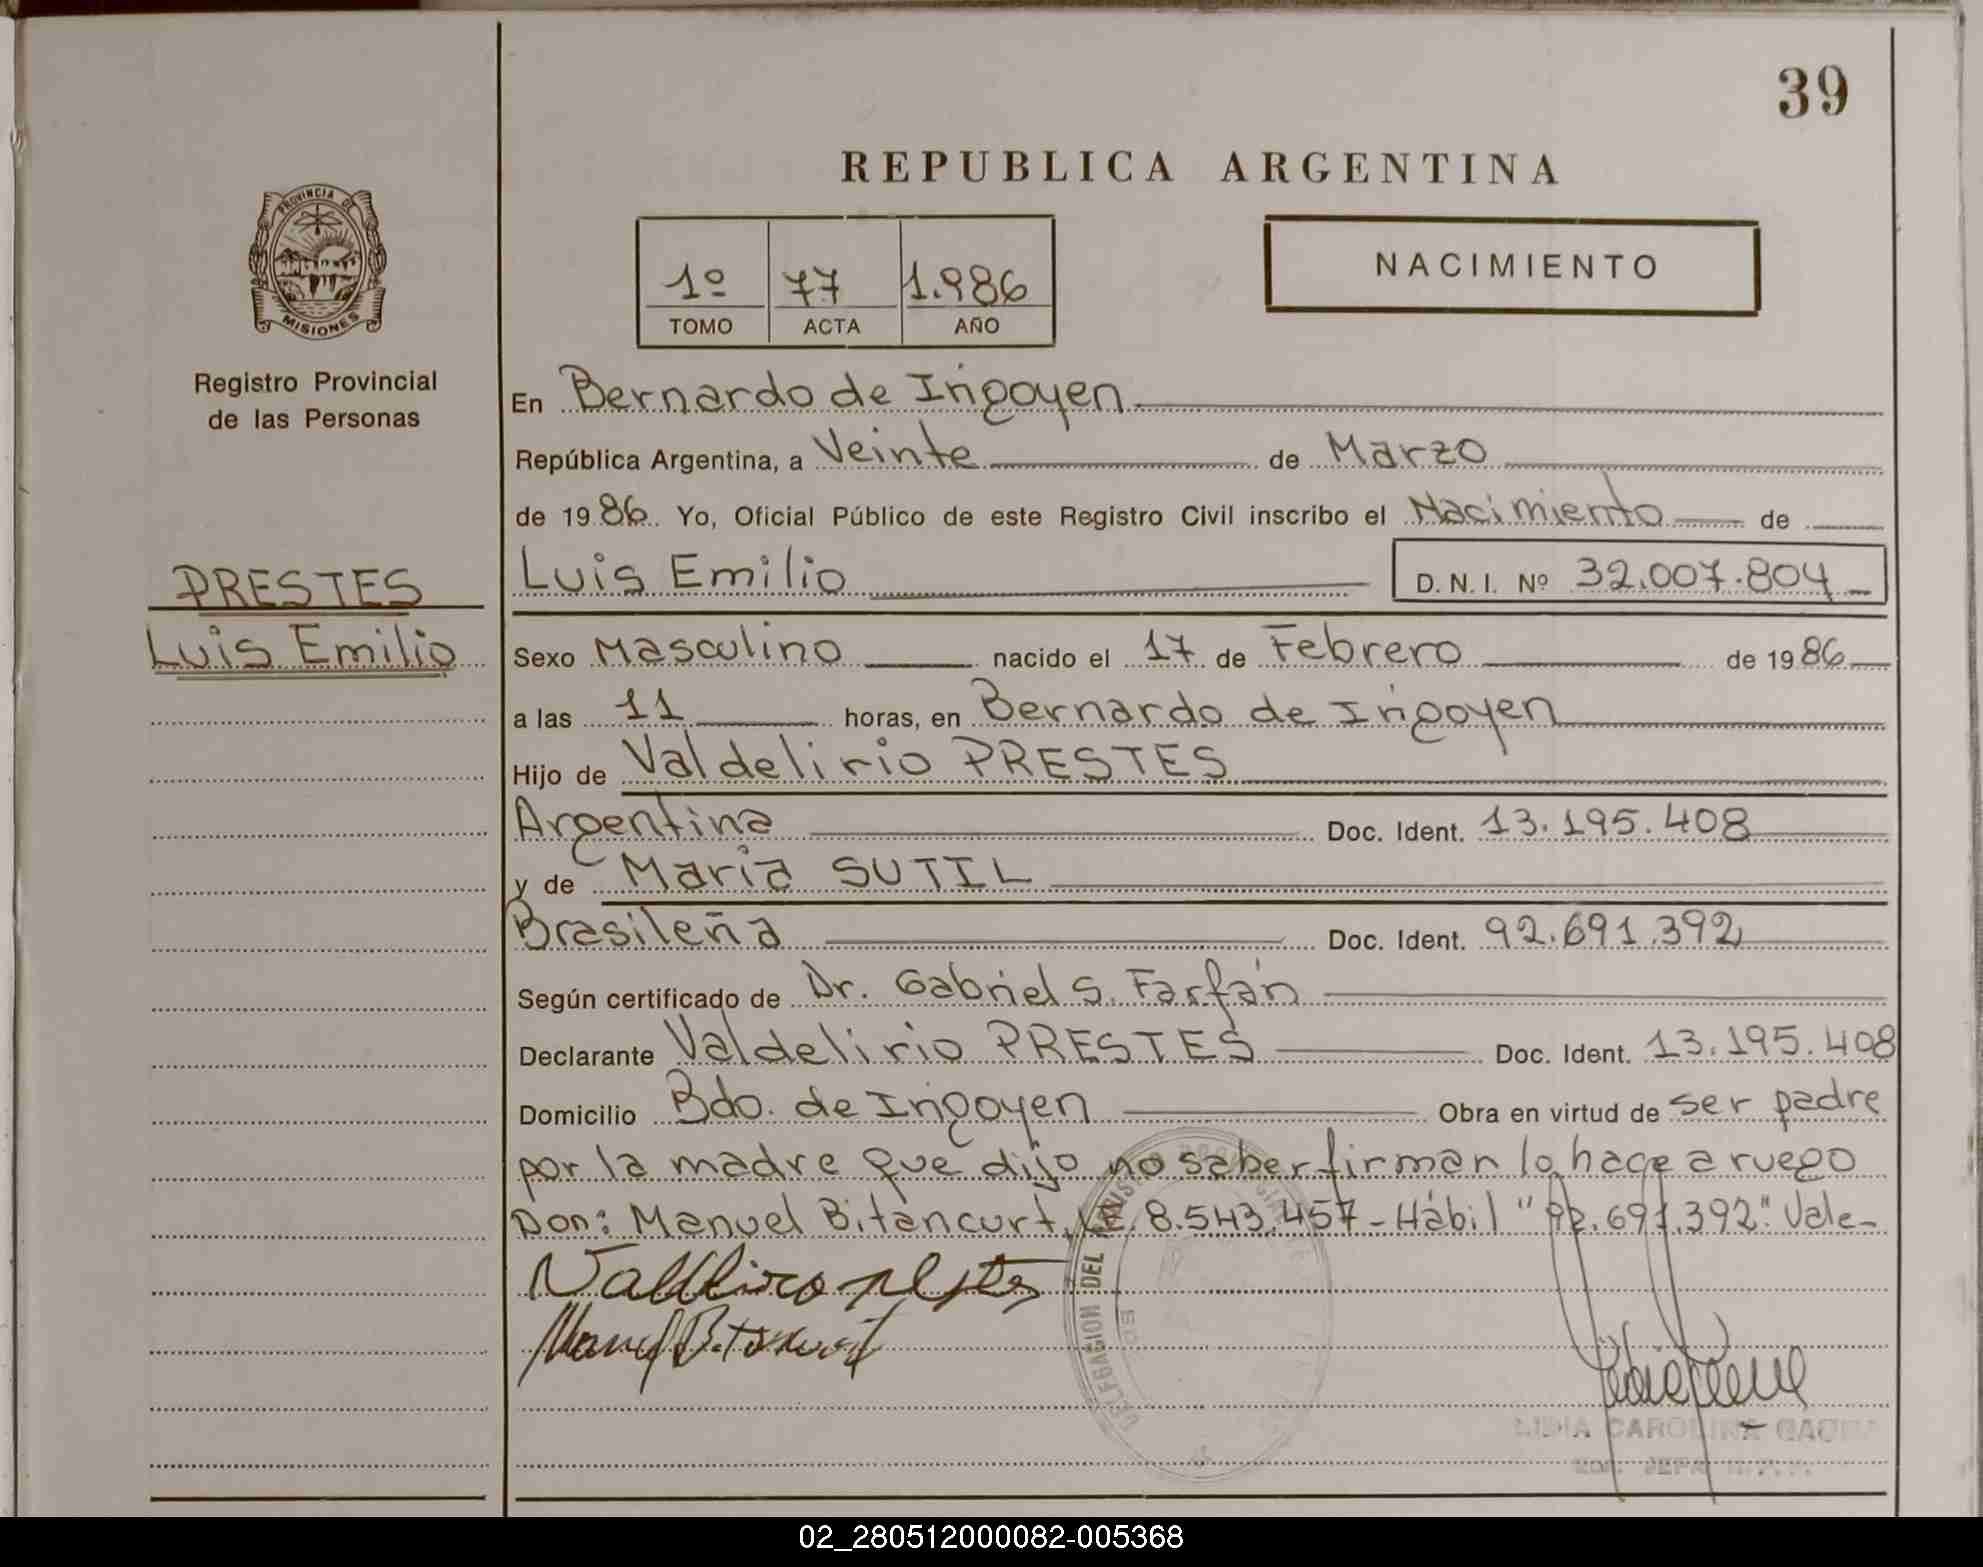 39
REPUBLICA ARGENTINA
PROVINCIA DE
MISIONES
Registro Provincial
de las Personas
1º 77 1.986
TOMO ACTA AÑO
NACIMIENTO
En Bernardo de Irigoyen
República Argentina, a Veinte de Marzo
de 1986. Yo, Oficial Público de este Registro Civil inscribo el Nacimiento de
Luis Emilio D.N.I. Nº 32.007.804
PRESTES
Luis Emilio
Sexo Masculino nacido el 17 de Febrero de 1986
a las 11 horas, en Bernardo de Irigoyen
Hijo de Valdelirio PRESTES
Argentina Doc. Ident. 13.195.408
y de Maria SUTIL
Brasileña Doc. Ident. 92.691.392
Según certificado de Dr. Gabriel S. Farfán
Declarante Valdelirio PRESTES Doc. Ident. 13.195.408
Domicilio Bdo. de Irigoyen Obra en virtud de ser padre
por la madre que dijo no saber firmar lo hace a ruego
Don: Manuel Bitancurt, L.E. 8.543.457 - Hábil "92.691.392". Vale-
Manuel Bitancurt
DELEGACION DEL
LIDIA CAROLINA
02_280512000082-005368